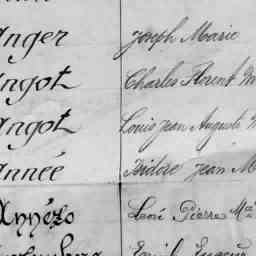 anger Joseph Marie
ngot Charles Florent M
ngot Louis Jean Auguste M
année Isidore Jean M
Annézo René Pierre Mie
Emile Eugène